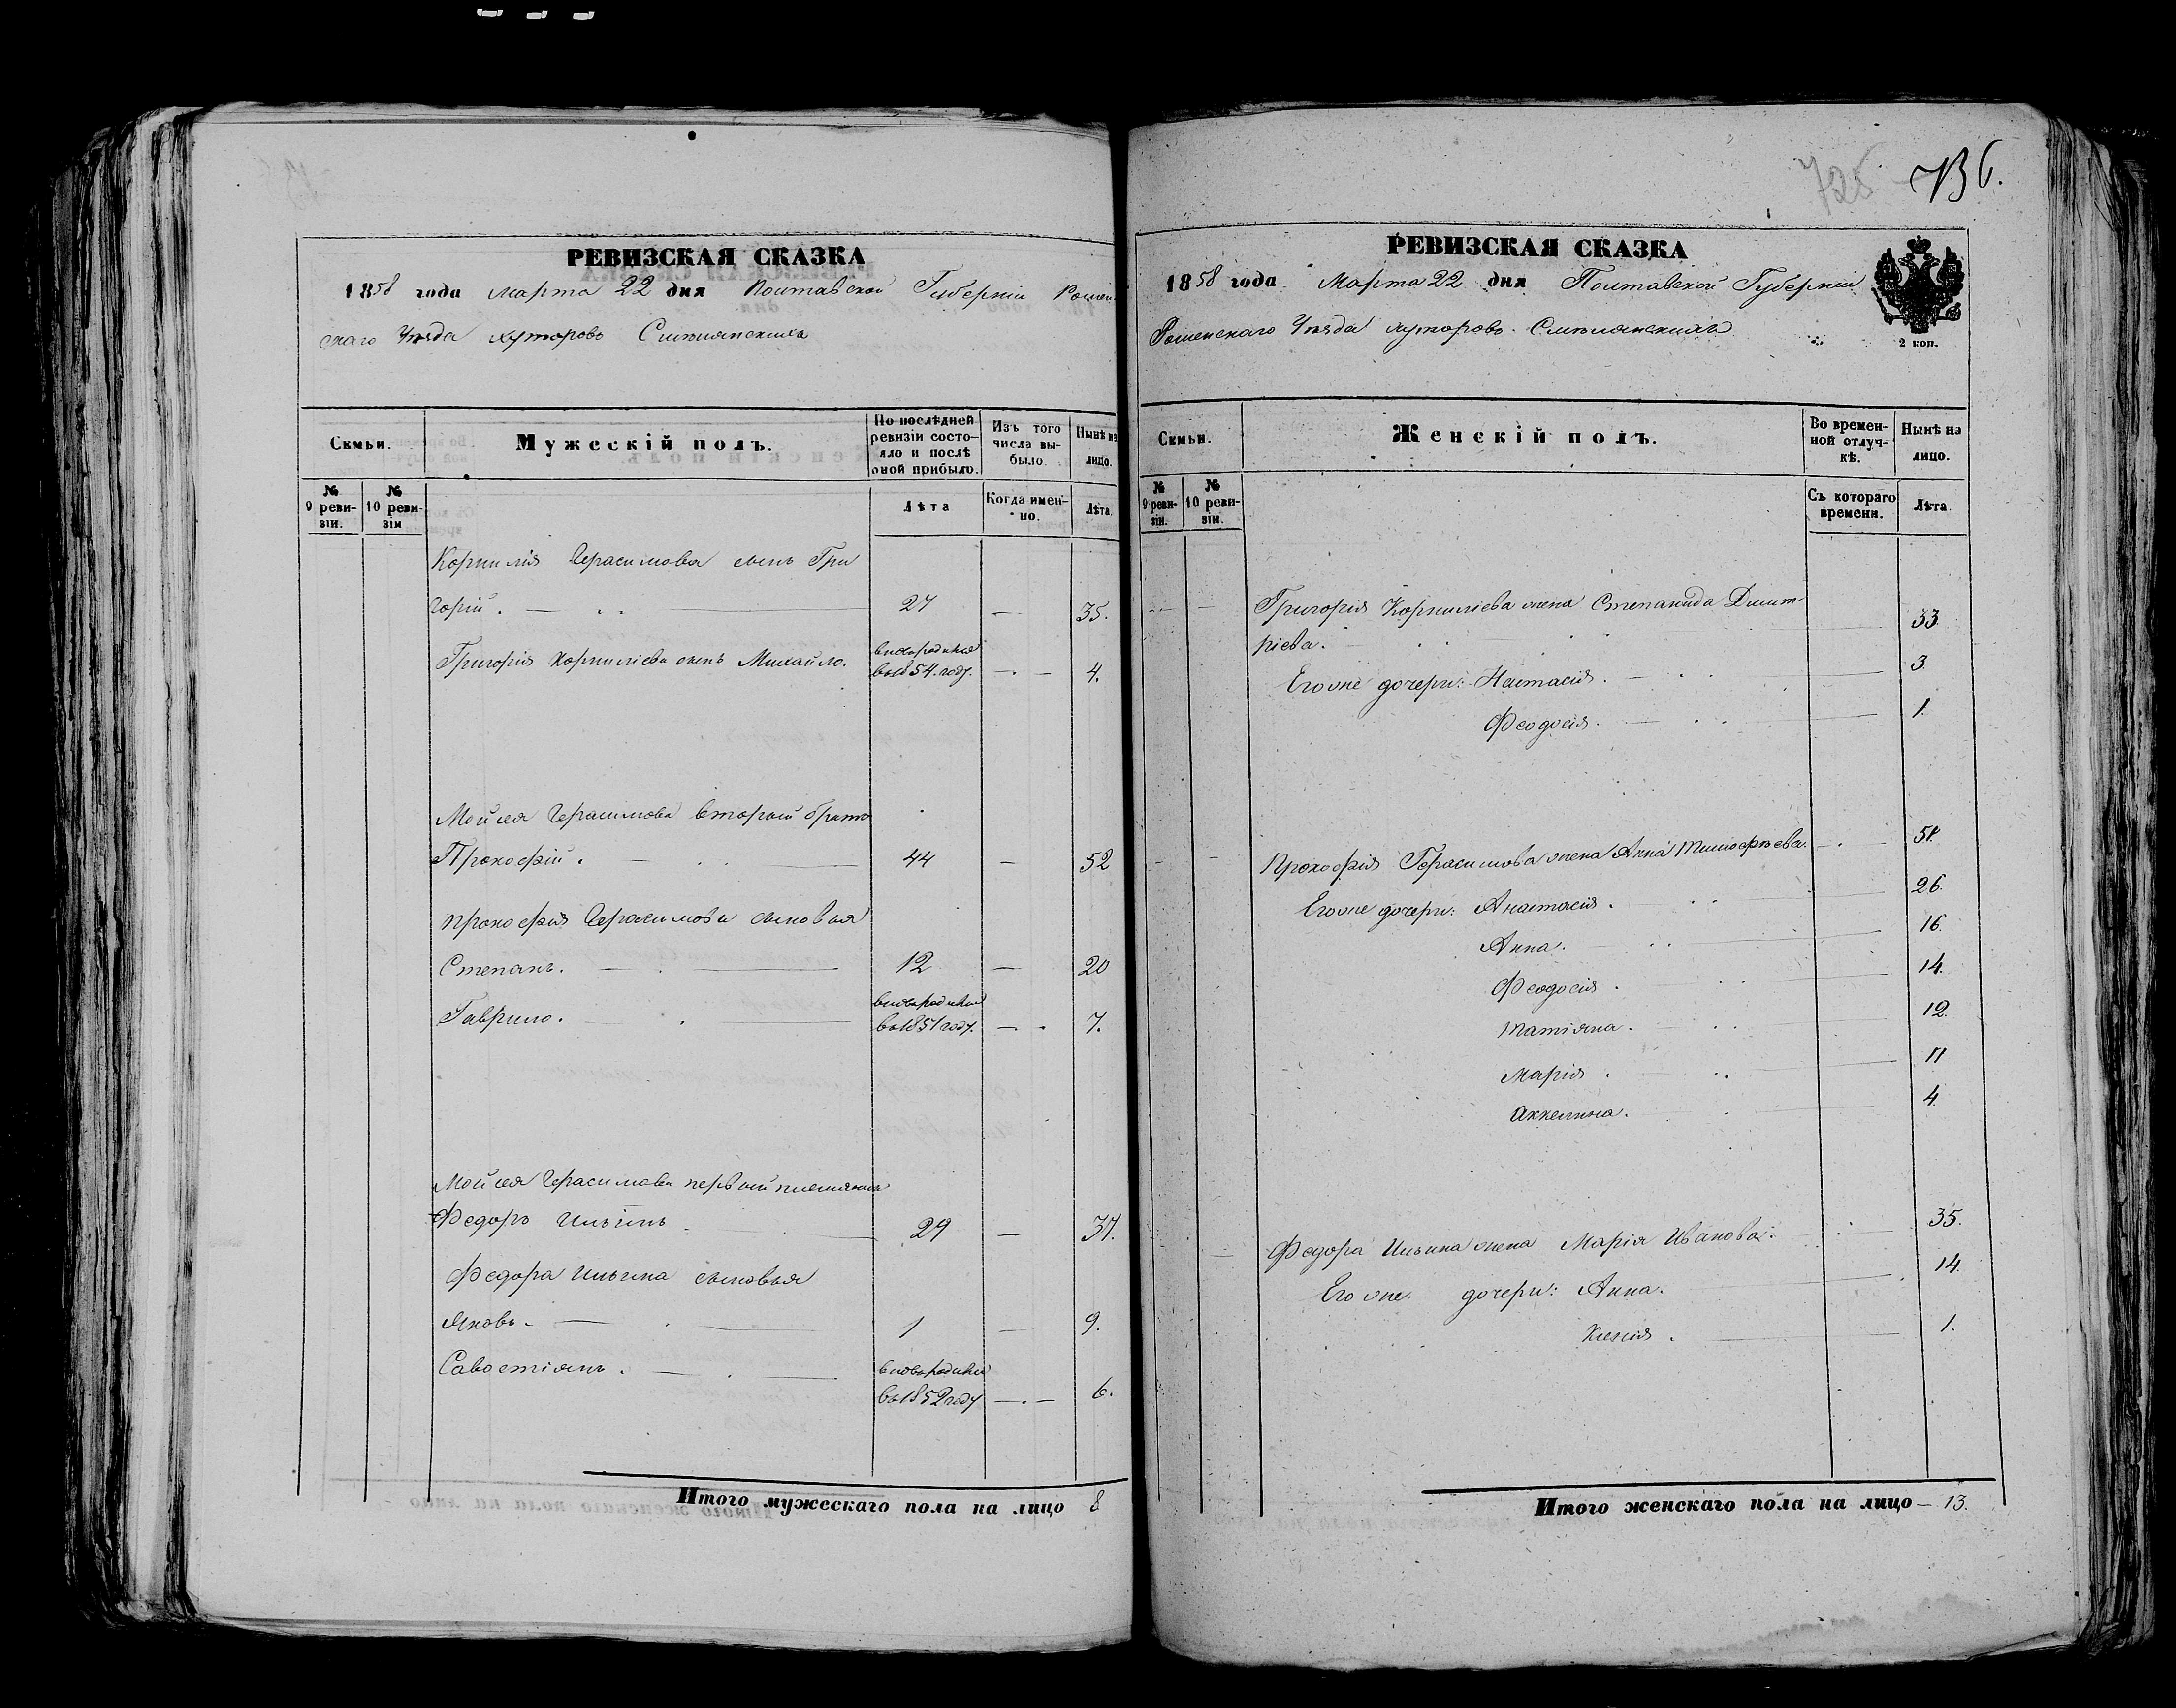 РЕВИЗСКАЯ СКАЗКА
1858 года Марта 22 дня Полтавской Губерніи Ромен-
скаго Уѣзда хуторовъ Смѣлянскихъ
Семьи.
Мужескій полъ.
По послѣдней ревизіи состояло и послѣ оной прибыло.
Изъ того числа выбыло.
Нынѣ на лицо.
№ 9 ревизіи.
№ 10 ревизіи
Лѣта
Когда именно.
Лѣта.
Корнилія Герасимова сынъ Гри
горій. 27 — 35.
Григорія Корниліева сынъ Михайло. вновьрожденъ
въ 1854. году. — 4.
Мойсея Герасимова вторый братъ
Прокофій. 44 — 52
Прокофія Герасимова сыновья
Степанъ. 12 — 20
Гаврило. вновьрожденъ
въ 1851 году. — 7.
Мойсея Герасимова первый племянникъ
Федоръ Ильинъ 29 — 37.
Федора Ильина сыновья
Яковъ. 1 — 9.
Савостіянъ. вновьрожденъ
въ 1852 году — 6.
Итого мужескаго пола на лицо 8
725
736.
РЕВИЗСКАЯ СКАЗКА
1858 года Марта 22 дня Полтавской Губерніи
Роменскаго Уѣзда хуторовъ Смѣлянскихъ
2 коп.
Семьи.
Женскій полъ.
Во временной отлучкѣ.
Нынѣ на лицо.
№ 9 ревизіи.
№ 10 ревизіи.
Съ котораго времени.
Лѣта.
Григорія Корниліева жена Степанида Димит-
ріева. — 33
Егожъ дочери: Настасія. — 3
Феодосія. — 1.
Прокофія Герасимова жена Анна Тимофѣева. —
Егоже дочери: Анастасія. — 26.
Анна. — 16.
Феодосія. — 14.
Татіяна. — 12.
Марія. — 11
Аккелина. — 4
Федора Ильина жена Марія Иванова. — 35.
Егоже дочери: Анна. — 14.
Ксенія. — 1.
Итого женскаго пола на лицо — 13.